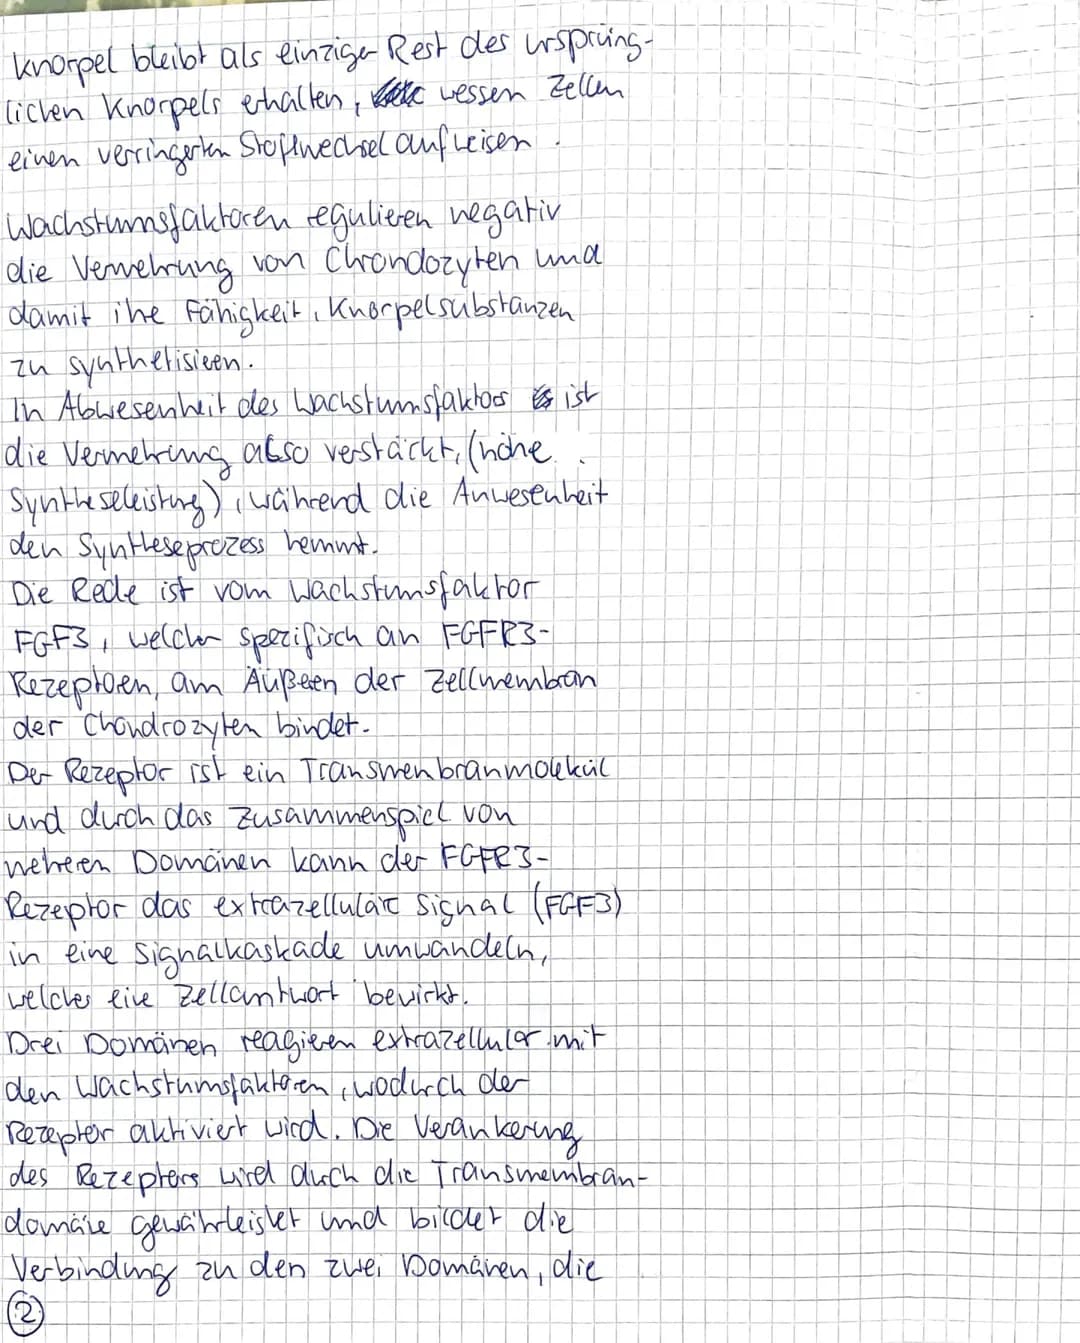 Knorpel bleibt als einziger Rest des ursprüng-
lichen Knorpels erhalten, wessen Zellen
einen verringerten Stoffwechsel aufweisen.
Wachstumsfaktoren regulieren negativ
die Vermehrung von Chrondozyten und
damit ihre Fähigkeit, Knorpelsubstanzen
zu synthetisieren.
In Abwesenheit des Wachstumsfaktors ist
die Vermehrung also verstärkt, (hohe
Syntheseleistung), während die Anwesenheit
den Syntheseprozess hemmt.
Die Rede ist vom Wachstumsfaktor
FGF3, welcher spezifisch an FGFR3-
Rezeptoren, am Äußeren der Zellmembran
der Chondrozyten bindet.
Der Rezeptor ist ein Transmenbranmolekül
und durch das Zusammenspiel von
mehreren Domänen kann der FGFR3-
Rezeptor das extrazelluläre Signal (FGF3)
in eine Signalkaskade umwandeln,
welches eine Zellantwort bewirkt.
Drei Domänen reagieren extrazellulär mit
den Wachstumsfaktoren, wodurch der
Rezeptor aktiviert wird. Die Verankerung
des Rezeptors wird durch die Transmembran-
domäne gewährleistet und bildet die
Verbindung zu den zwei Domänen, die
2